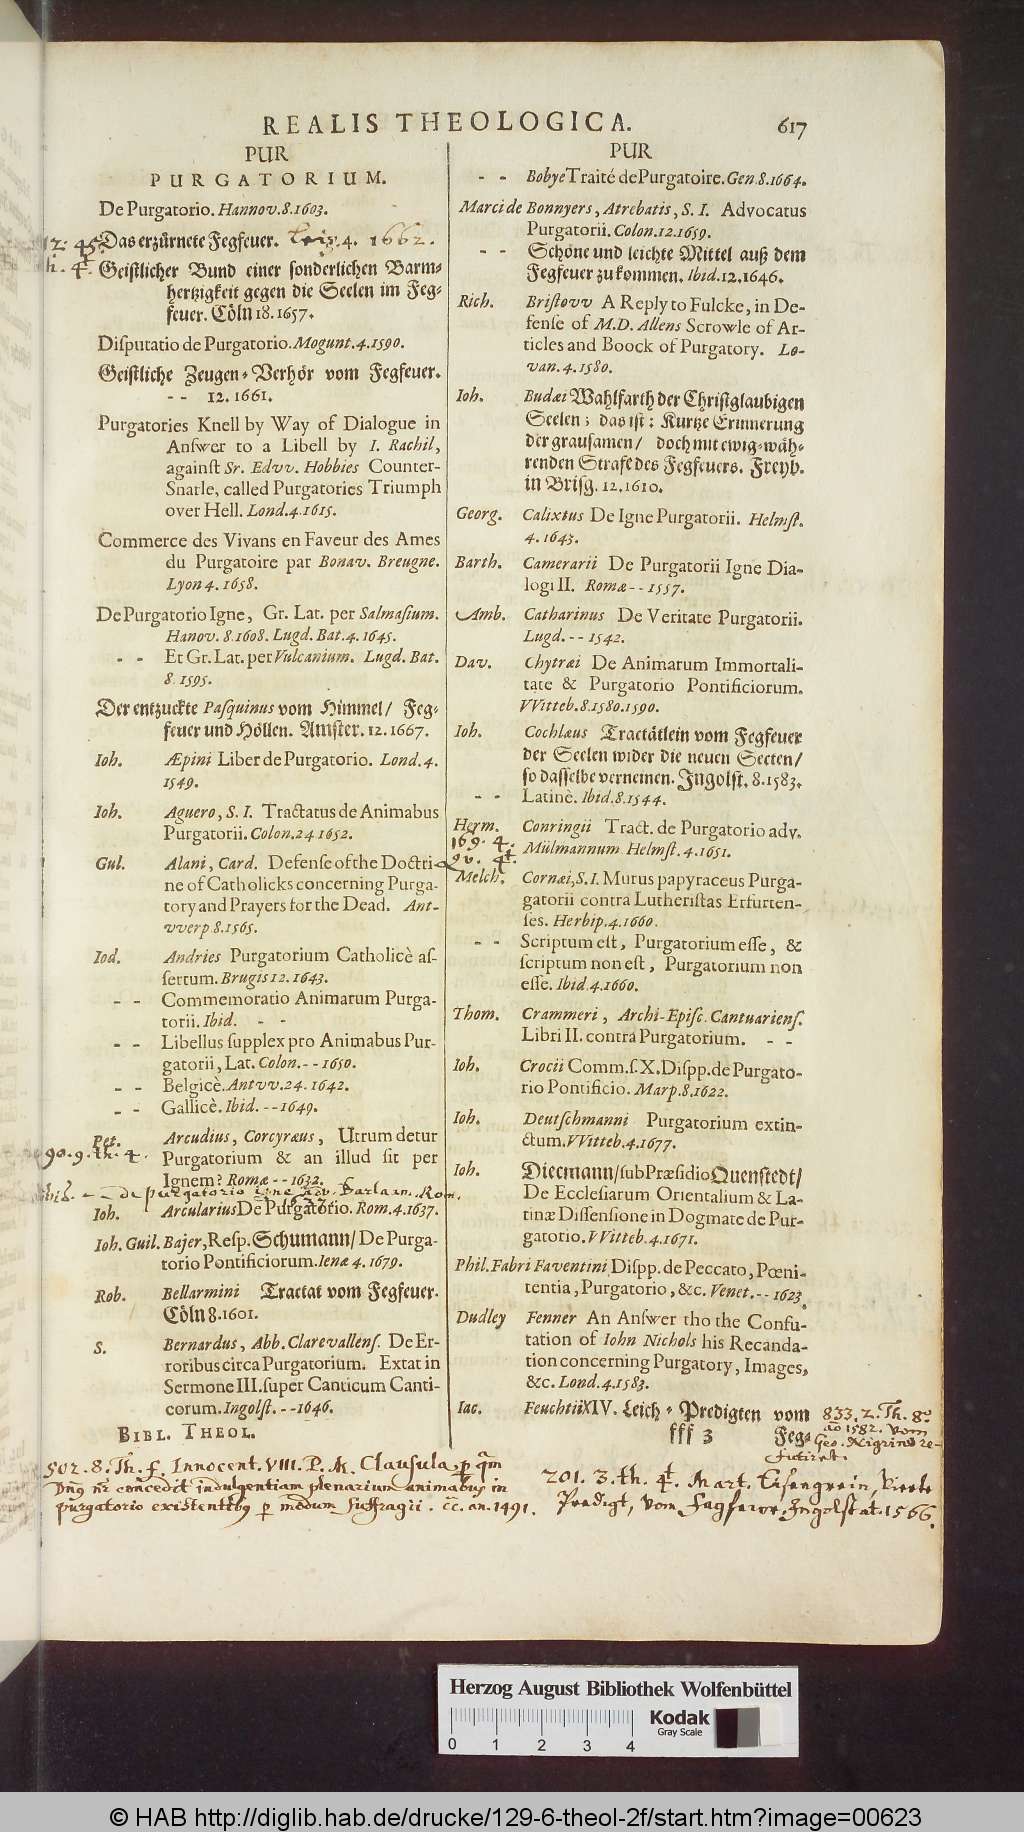 REALIS THEOLOGICA. 617
PUR
PURGATORIUM.
De Purgatorio. Hannov. 8. 1603.
12: 45. Das erzürnete Fegfeuer. Leip. 4. 1662.
th. 4t. Geistlicher Bund einer sonderlichen Barm-
hertzigkeit gegen die Seelen im Feg-
feuer. Cöln 18. 1657.
Disputatio de Purgatorio. Mogunt. 4. 1590.
Geistliche Zeugen-Verhör vom Fegfeuer.
- - 12. 1661.
Purgatories Knell by Way of Dialogue in
Anſwer to a Libell by I. Rachil,
againſt Sr. Edvv. Hobbies Counter-
Snarle, called Purgatories Triumph
over Hell. Lond. 4. 1615.
Commerce des Vivans en Faveur des Ames
du Purgatoire par Bonav. Breugne.
Lyon 4. 1658.
De Purgatorio Igne, Gr. Lat. per Salmaſium.
Hanov. 8. 1608. Lugd. Bat. 4. 1645.
- - Et Gr. Lat. per Vulcanium. Lugd. Bat.
8. 1595.
Der entzuckte Paſquinus vom Himmel/ Feg-
feuer und Höllen. Amſter. 12. 1667.
Ioh. Æpini Liber de Purgatorio. Lond. 4.
1549.
Ioh. Aguero, S. I. Tractatus de Animabus
Purgatorii. Colon. 24. 1652.
Gul. Alani, Card. Defenſe of the Doctri-
ne of Catholicks concerning Purga-
tory and Prayers for the Dead. Ant-
vverp 8. 1565.
Iod. Andries Purgatorium Catholicè aſ-
ſertum. Brugis 12. 1643.
- - Commemoratio Animarum Purga-
torii. Ibid. - -
- - Libellus ſupplex pro Animabus Pur-
gatorii, Lat. Colon. - - 1650.
- - Belgicè. Antvv. 24. 1642.
- - Gallicè. Ibid. - - 1649.
Pet. Arcudius, Corcyræus, Utrum detur
90. 9. th. 4. Purgatorium & an illud ſit per
Ignem? Romæ - - 1632.
ibid. - - de purgatorio igne adv. Barlaam. Rom.
1637
Ioh. Arcularius De Purgatorio. Rom. 4. 1637.
Ioh. Guil. Bajer, Reſp. Schumann/ De Purga-
torio Pontificiorum. Ienæ 4. 1679.
Rob. Bellarmini Tractat vom Fegfeuer.
Cöln 8. 1601.
S. Bernardus, Abb. Clarevallenſ. De Er-
roribus circa Purgatorium. Extat in
Sermone III. ſuper Canticum Canti-
corum. Ingolſt. - - 1646.
BIBL. THEOL.
502. 8. Th. f. Innocent. VIII. P. M. Clausula, p qm
Dns nr concedit indulgentiam plenarium animabus in
purgatorio existentibus p modum suffragii. an. 1491.
PUR
- - Bobye Traité de Purgatoire. Gen. 8. 1664.
Marci de Bonnyers, Atrebatis, S. I. Advocatus
Purgatorii. Colon. 12. 1659.
- - Schöne und leichte Mittel auß dem
Fegfeuer zu kommen. Ibid. 12. 1646.
Rich. Briſtovv A Reply to Fulcke, in De-
fenſe of M. D. Allens Scrowle of Ar-
ticles and Boock of Purgatory. Lo-
van. 4. 1580.
Ioh. Budæi Wahlfarth der Chriſtglaubigen
Seelen; das iſt: Kurtze Erinnerung
der grauſamen/ doch mit ewig-wäh-
renden Strafe des Fegfeuers. Freyb.
in Briſg. 12. 1610.
Georg. Calixtus De Igne Purgatorii. Helmſt.
4. 1643.
Barth. Camerarii De Purgatorii Igne Dia-
logi II. Romæ - - 1557.
Amb. Catharinus De Veritate Purgatorii.
Lugd. - - 1542.
Dav. Chytræi De Animarum Immortali-
tate & Purgatorio Pontificiorum.
VVitteb. 8. 1580. 1590.
Ioh. Cochlæus Tractätlein vom Fegfeuer
der Seelen wider die neuen Secten/
ſo daſſelbe verneinen. Ingolſt. 8. 1583.
- - Latinè. Ibid. 8. 1544.
Herm. Conringii Tract. de Purgatorio adv.
169. 4. Mülmannum Helmſt. 4. 1651.
qv. 4t.
Melch. Cornæi, S. I. Murus papyraceus Purga-
gatorii contra Lutheriſtas Erfurten-
ſes. Herbip. 4. 1660.
- - Scriptum eſt, Purgatorium eſſe, &
ſcriptum non eſt, Purgatorium non
eſſe. Ibid. 4. 1660.
Thom. Crammeri, Archi-Epiſc. Cantuarienſ.
Libri II. contra Purgatorium. - -
Ioh. Crocii Comm. ſ. X. Diſpp. de Purgato-
rio Pontificio. Marp. 8. 1622.
Ioh. Deutſchmanni Purgatorium extin-
ctum. VVitteb. 4. 1677.
Ioh. Diecmann/ ſub Præſidio Quenſtedt/
De Eccleſiarum Orientalium & La-
tinæ Diſſenſione in Dogmate de Pur-
gatorio. VVitteb. 4. 1671.
Phil. Fabri Faventini Diſpp. de Peccato, Pœni-
tentia, Purgatorio, &c. Venet. - - 1623.
Dudley Fenner An Anſwer tho the Confu-
tation of Iohn Nichols his Recanda-
tion concerning Purgatory, Images,
&c. Lond. 4. 1583.
Iac. Feuchtii XIV. Leich-Predigten vom
fff 3 Feg-
833. 2. Th. 8o
ao 1582. vom
Geo. Nigrino re-
futiret.
201. 3. th. 4t. Mart. Eisengrein,
Predigt, vom Fagfewr. Ingolstat. 1566.
Herzog August Bibliothek Wolfenbüttel
Kodak
Gray Scale
0 1 2 3 4
© HAB http://diglib.hab.de/drucke/129-6-theol-2f/start.htm?image=00623